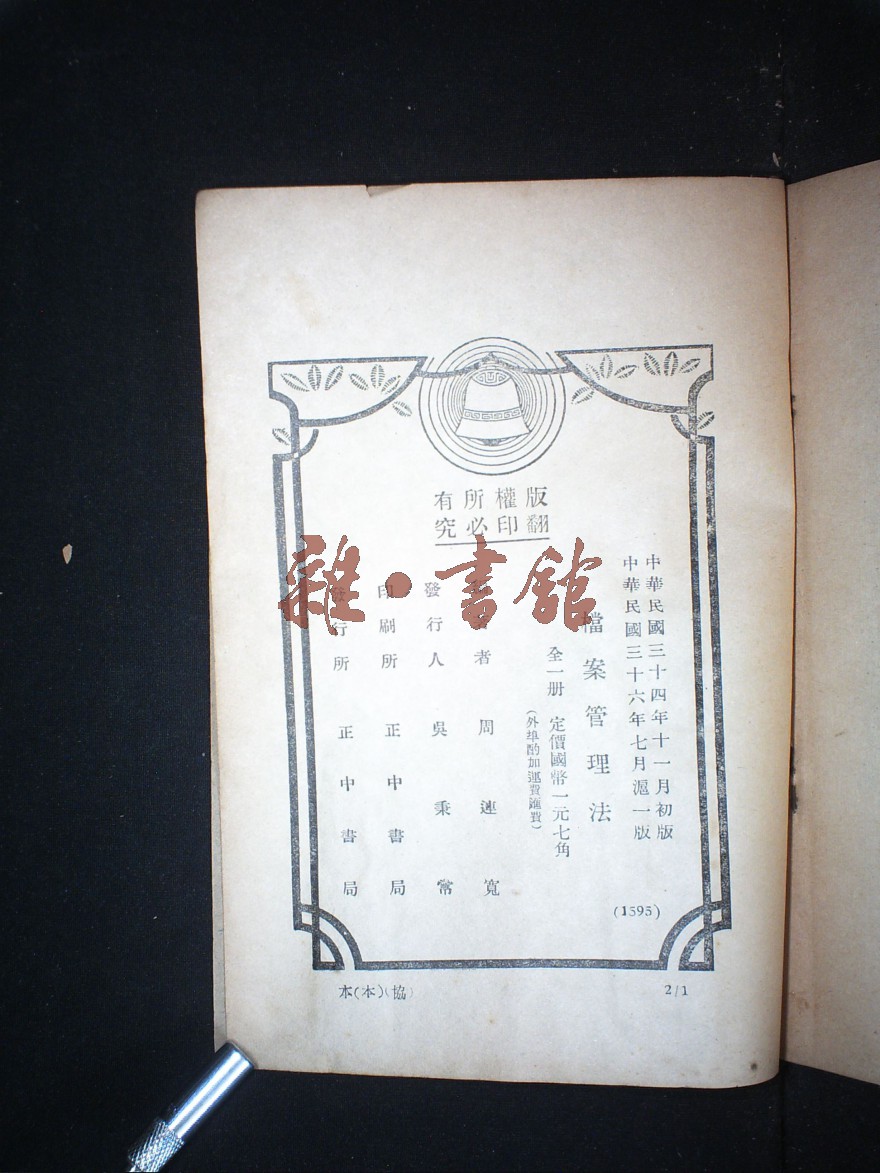 版權所有
翻印必究
中華民國三十四年十一月初版
中華民國三十六年七月滬一版
(1595)
檔案管理法
全一册 定價國幣一元七角
(外埠酌加運費滙費)
者 周連寬
發行人 吳秉常
印刷所 正中書局
發行所 正中書局
雜·書館
2/1
本(本)(協)